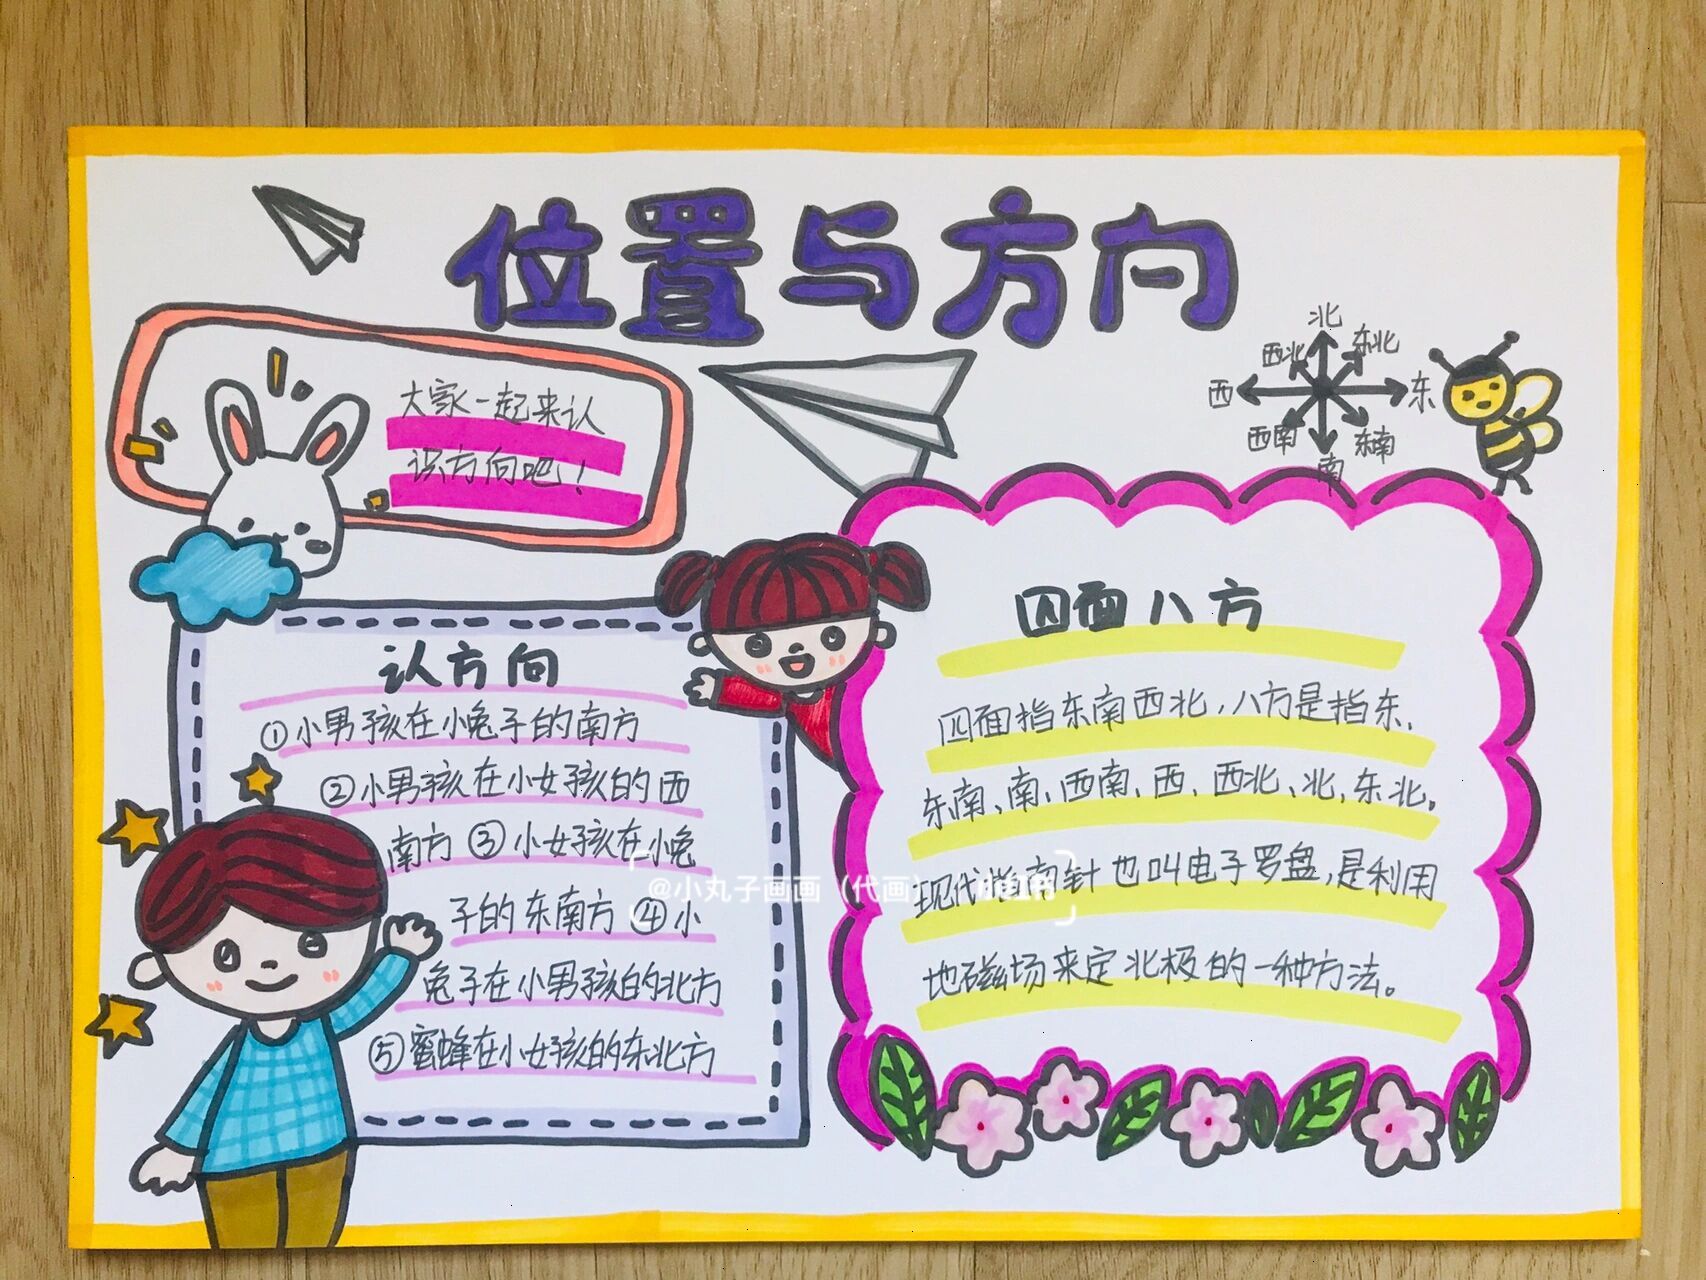 位置与方向
大家一起来认
识方向吧！
北
西北
东北
西
东
西南
东南
南
认方向
①小男孩在小兔子的南方
②小男孩在小女孩的西
南方③小女孩在小兔
子的东南方④小
兔子在小男孩的北方
⑤蜜蜂在小女孩的东北方
四面八方
四面指东南西北，八方是指东、
东南、南、西南、西、西北、北、东北。
现代指南针也叫电子罗盘，是利用
地磁场来定北极的一种方法。
@小丸子画画（代画）